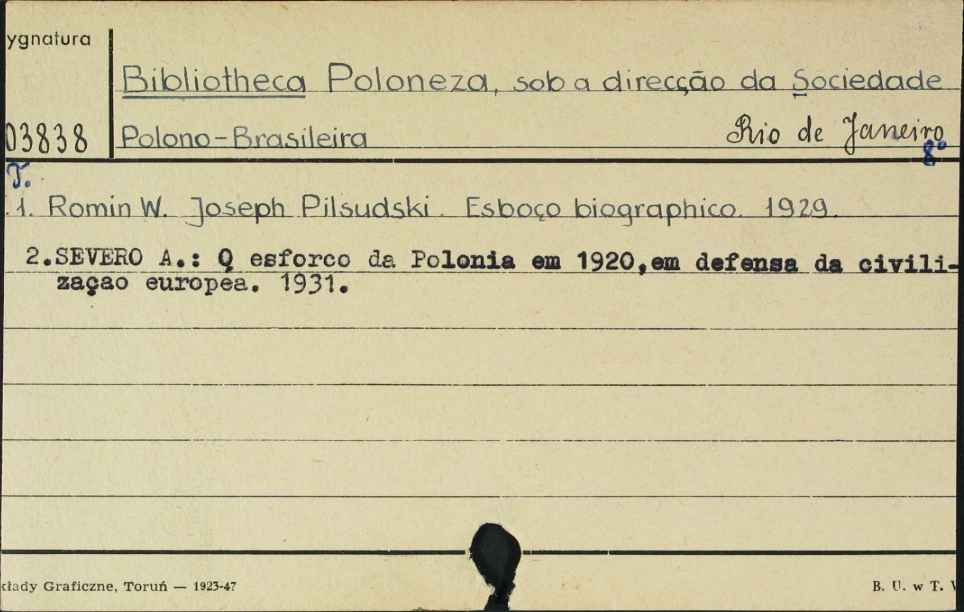 ygnatura
Bibliotheca Poloneza, sob a direcção da Sociedade
03838 Polono-Brasileira Rio de Janeiro
8°
T.
1. Romin W. Joseph Pilsudski. Esboço biographico. 1929.
2.SEVERO A.: Q esforco da Polonia em 1920,em defensa da civili-
zaçao europea. 1931.
kłady Graficzne, Toruń — 1923-47 B. U. w T.